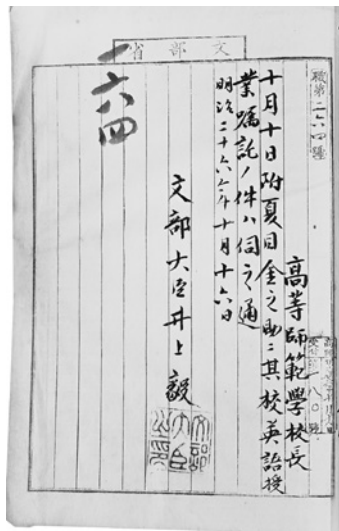 文部省
一六四
職第二六四號
高等師範學校長
十月十日附夏目金之助ニ其校英語授
業嘱託ノ件ハ伺之通
明治二十六年十月十六日
文部大臣井上毅
文部
大臣
之印